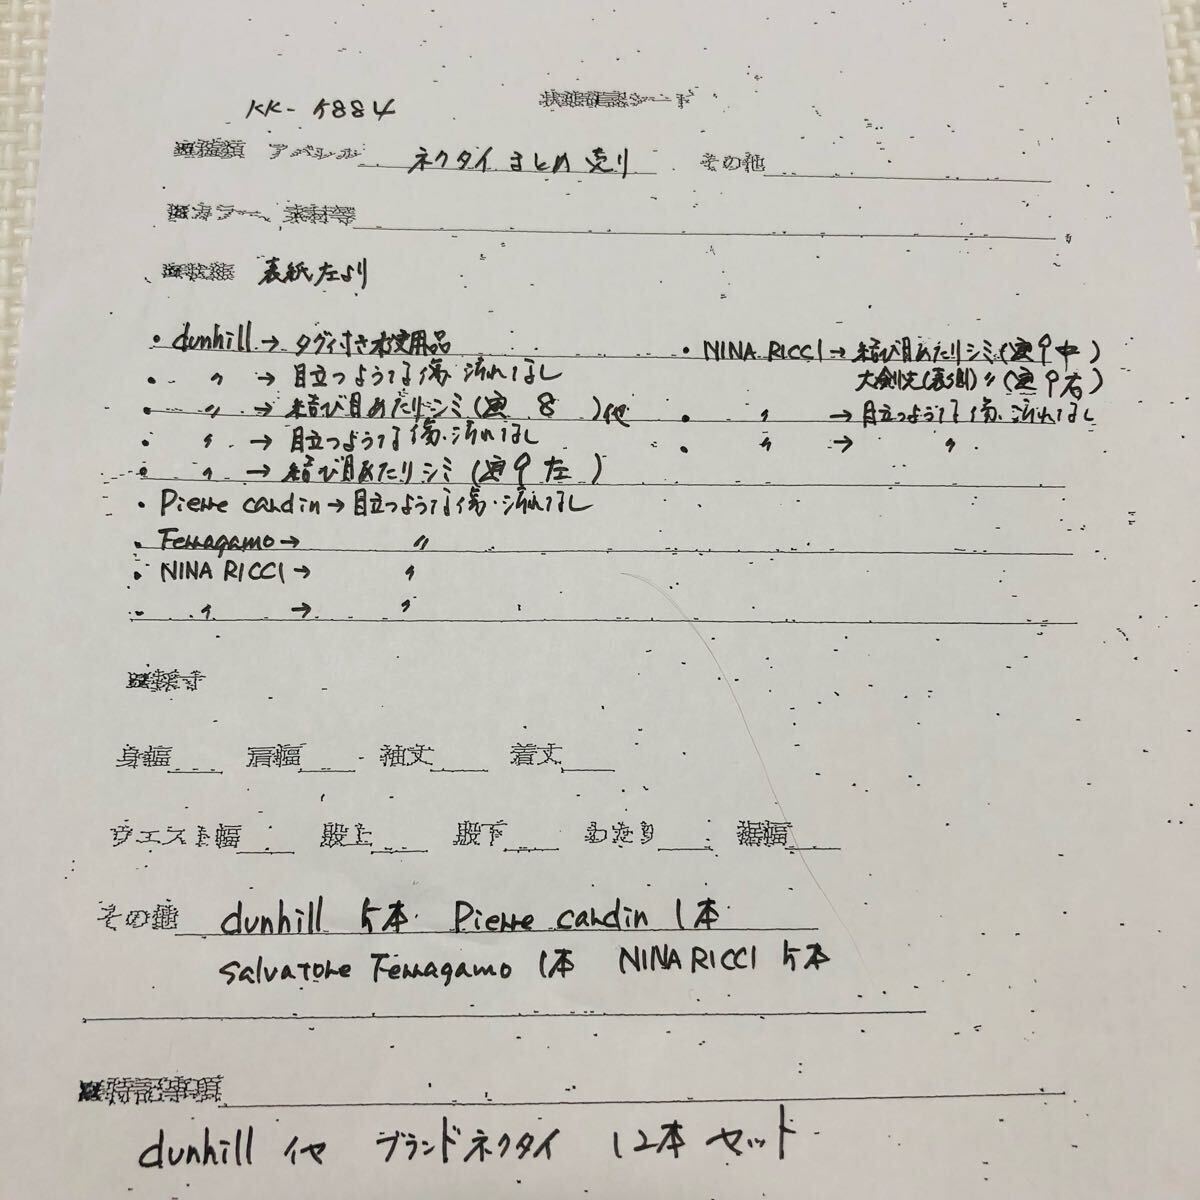 状態確認シート
KK-5884
種類 アパレル ネクタイ まとめ 売り その他
カラー、素材等
状態 表紙左より
・dunhill→タグ付き未使用品
・〃→目立つような傷・汚れなし
・〃→結び目あたりシミ(画8)他
・〃→目立つような傷・汚れなし
・〃→結び目あたりシミ(画9左)
・Pierre cardin→目立つような傷・汚れなし
・Ferragamo→〃
・NINA RICCI→〃
・〃→〃
・NINA RICCI→結び目あたりシミ(画9中)
大剣先(表側)〃(画9右)
・〃→目立つような傷・汚れなし
・〃→〃
採寸
身幅 肩幅 袖丈 着丈
ウエスト幅 股上 股下 わたり 裾幅
その他 dunhill 5本 Pierre cardin 1本
Salvatore Ferragamo 1本 NINA RICCI 5本
特記事項
dunhill 他 ブランドネクタイ 12本 セット